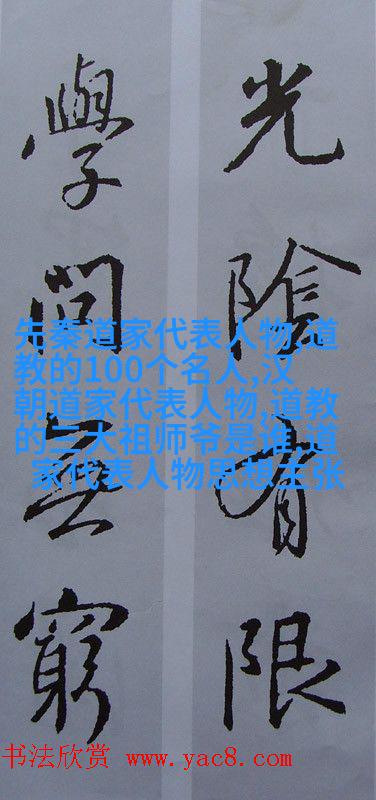 光陰有限
學問無窮
先秦道家代表人物,道
教的100个名人,汉
朝道家代表人物,道教
的三大祖师爷是谁,道
家代表人物思想主张
书法欣赏 www.yac8.com